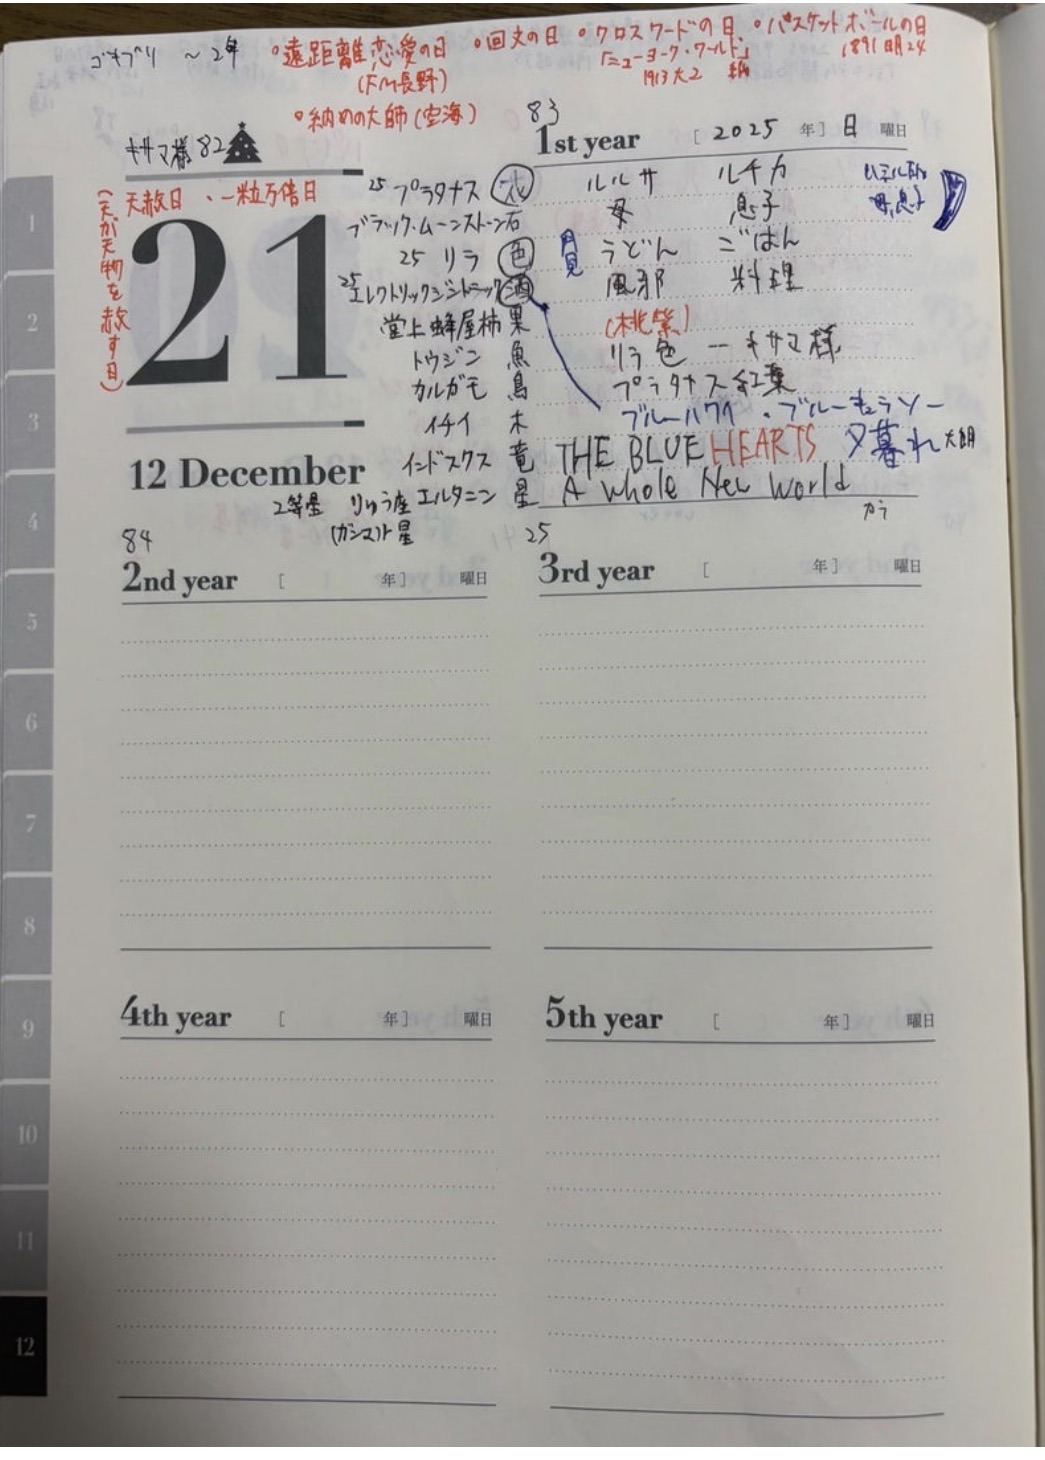 ゴキブリ ～2年
○遠距離恋愛の日
(FM長野)
○回文の日
○クロスワードの日
「ニューヨーク・ワールド」
1913 大2
○バスケットボールの日
1891 明24
○納めの大師(空海)
キサマ様82
天赦日、一粒万倍日
(天が万物を赦す日)
21
12 December
25 プラタナス 花
ブラック・ムーンストーン 石
25 リラ 色
25 エレクトリックジントニック 酒
堂上蜂屋柿 果
トウジン 魚
カルガモ 鳥
イチイ 木
インドスクス 竜
2等星 りゅう座 エルタニン 星
83
1st year [ 2025 年] 日 曜日
ルルサ ルチカ
母 息子
月見 うどん ごはん
風邪 料理
(桃紫)
リラ色 ー キサマ様
プラタナス紅葉
ブルーハワイ・ブルーキュラソー
THE BLUE HEARTS 夕暮れ
A Whole New World
84
2nd year [ 年] 曜日
25
3rd year [ 年] 曜日
4th year [ 年] 曜日
5th year [ 年] 曜日
1
2
3
4
5
6
7
8
9
10
11
12